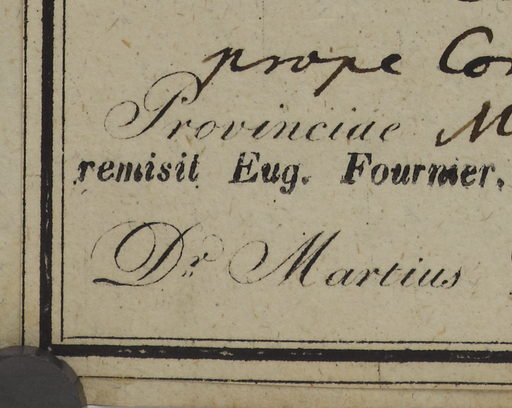 prope
Provinciae
remisit Eug. Fournier.
Dr. Martius